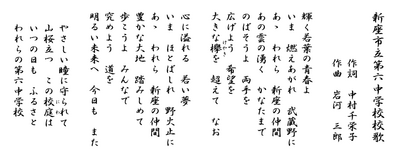 新座市立第六中学校校歌
作詞 中村千栄子
作曲 岩河 三郎
輝く若葉の青春よ
いま 燃えあがれ 武蔵野に
あゝ われら 新座の仲間
あの雲の湧く かなたまで
のばそうよ 両手を
広げよう 希望を
大きな欅を 超えて なお
心に溢れる 若い夢
いま ほとばしれ 野火止に
あゝ われら 新座の仲間
豊かな大地 踏みしめて
歩こうよ みんなで
究めよう 道を
明るい未来へ 今日も また
やさしい瞳に守られて
山桜立つ この校庭は
いつの日も ふるさと
われらの第六中学校